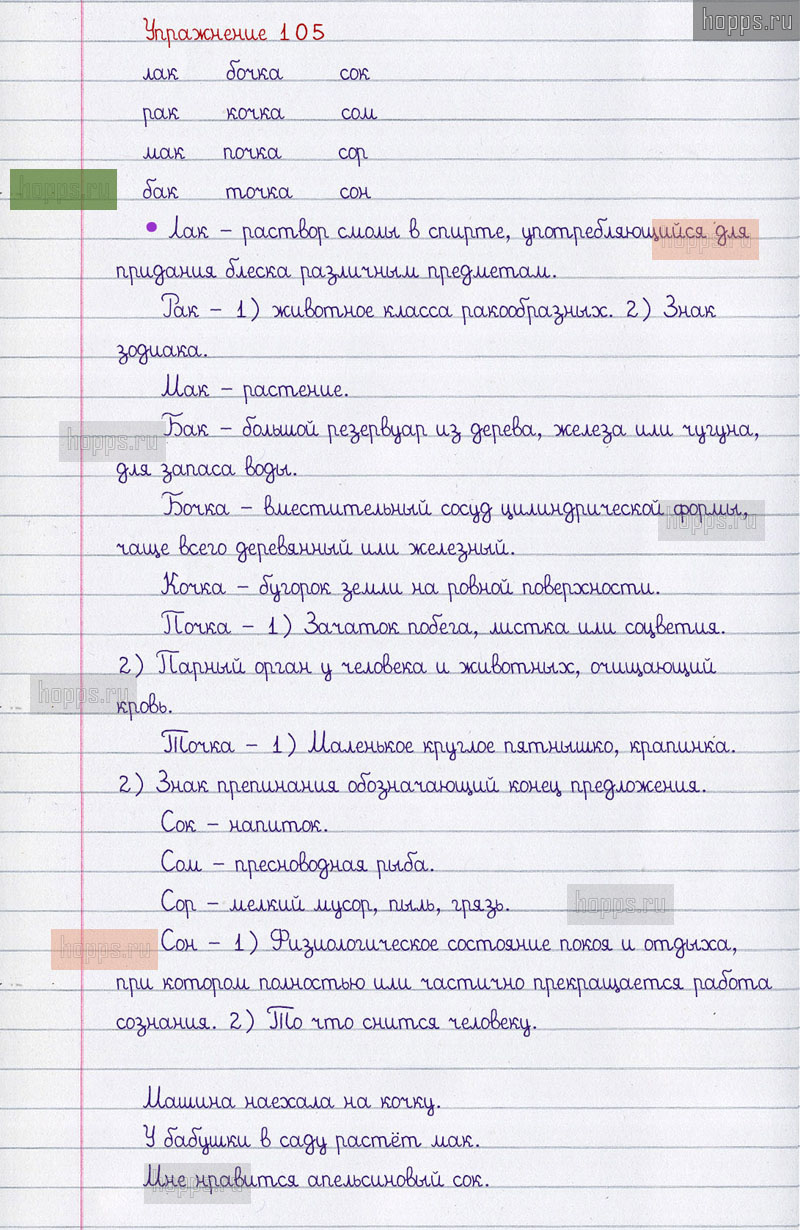 hopps.ru
Упражнение 105
лак бочка сок
рак кочка сом
мак почка сор
hopps.ru
бак точка сон
• Лак – раствор смолы в спирте, употребляющийся для
hopps.ru
придания блеска различным предметам.
Рак – 1) животное класса ракообразных. 2) Знак
зодиака.
Мак – растение.
hopps.ru
Бак – большой резервуар из дерева, железа или чугуна,
для запаса воды.
Бочка – вместительный сосуд цилиндрической формы,
hopps.ru
чаще всего деревянный или железный.
Кочка – бугорок земли на ровной поверхности.
Почка – 1) Зачаток побега, листка или соцветия.
2) Парный орган у человека и животных, очищающий
hopps.ru
кровь.
Точка – 1) Маленькое круглое пятнышко, крапинка.
2) Знак препинания обозначающий конец предложения.
Сок – напиток.
Сом – пресноводная рыба.
Сор – мелкий мусор, пыль, грязь.
hopps.ru
hopps.ru
Сон – 1) Физиологическое состояние покоя и отдыха,
при котором полностью или частично прекращается работа
сознания. 2) То что снится человеку.
Машина наехала на кочку.
У бабушки в саду растёт мак.
Мне нравится апельсиновый сок.
hopps.ru